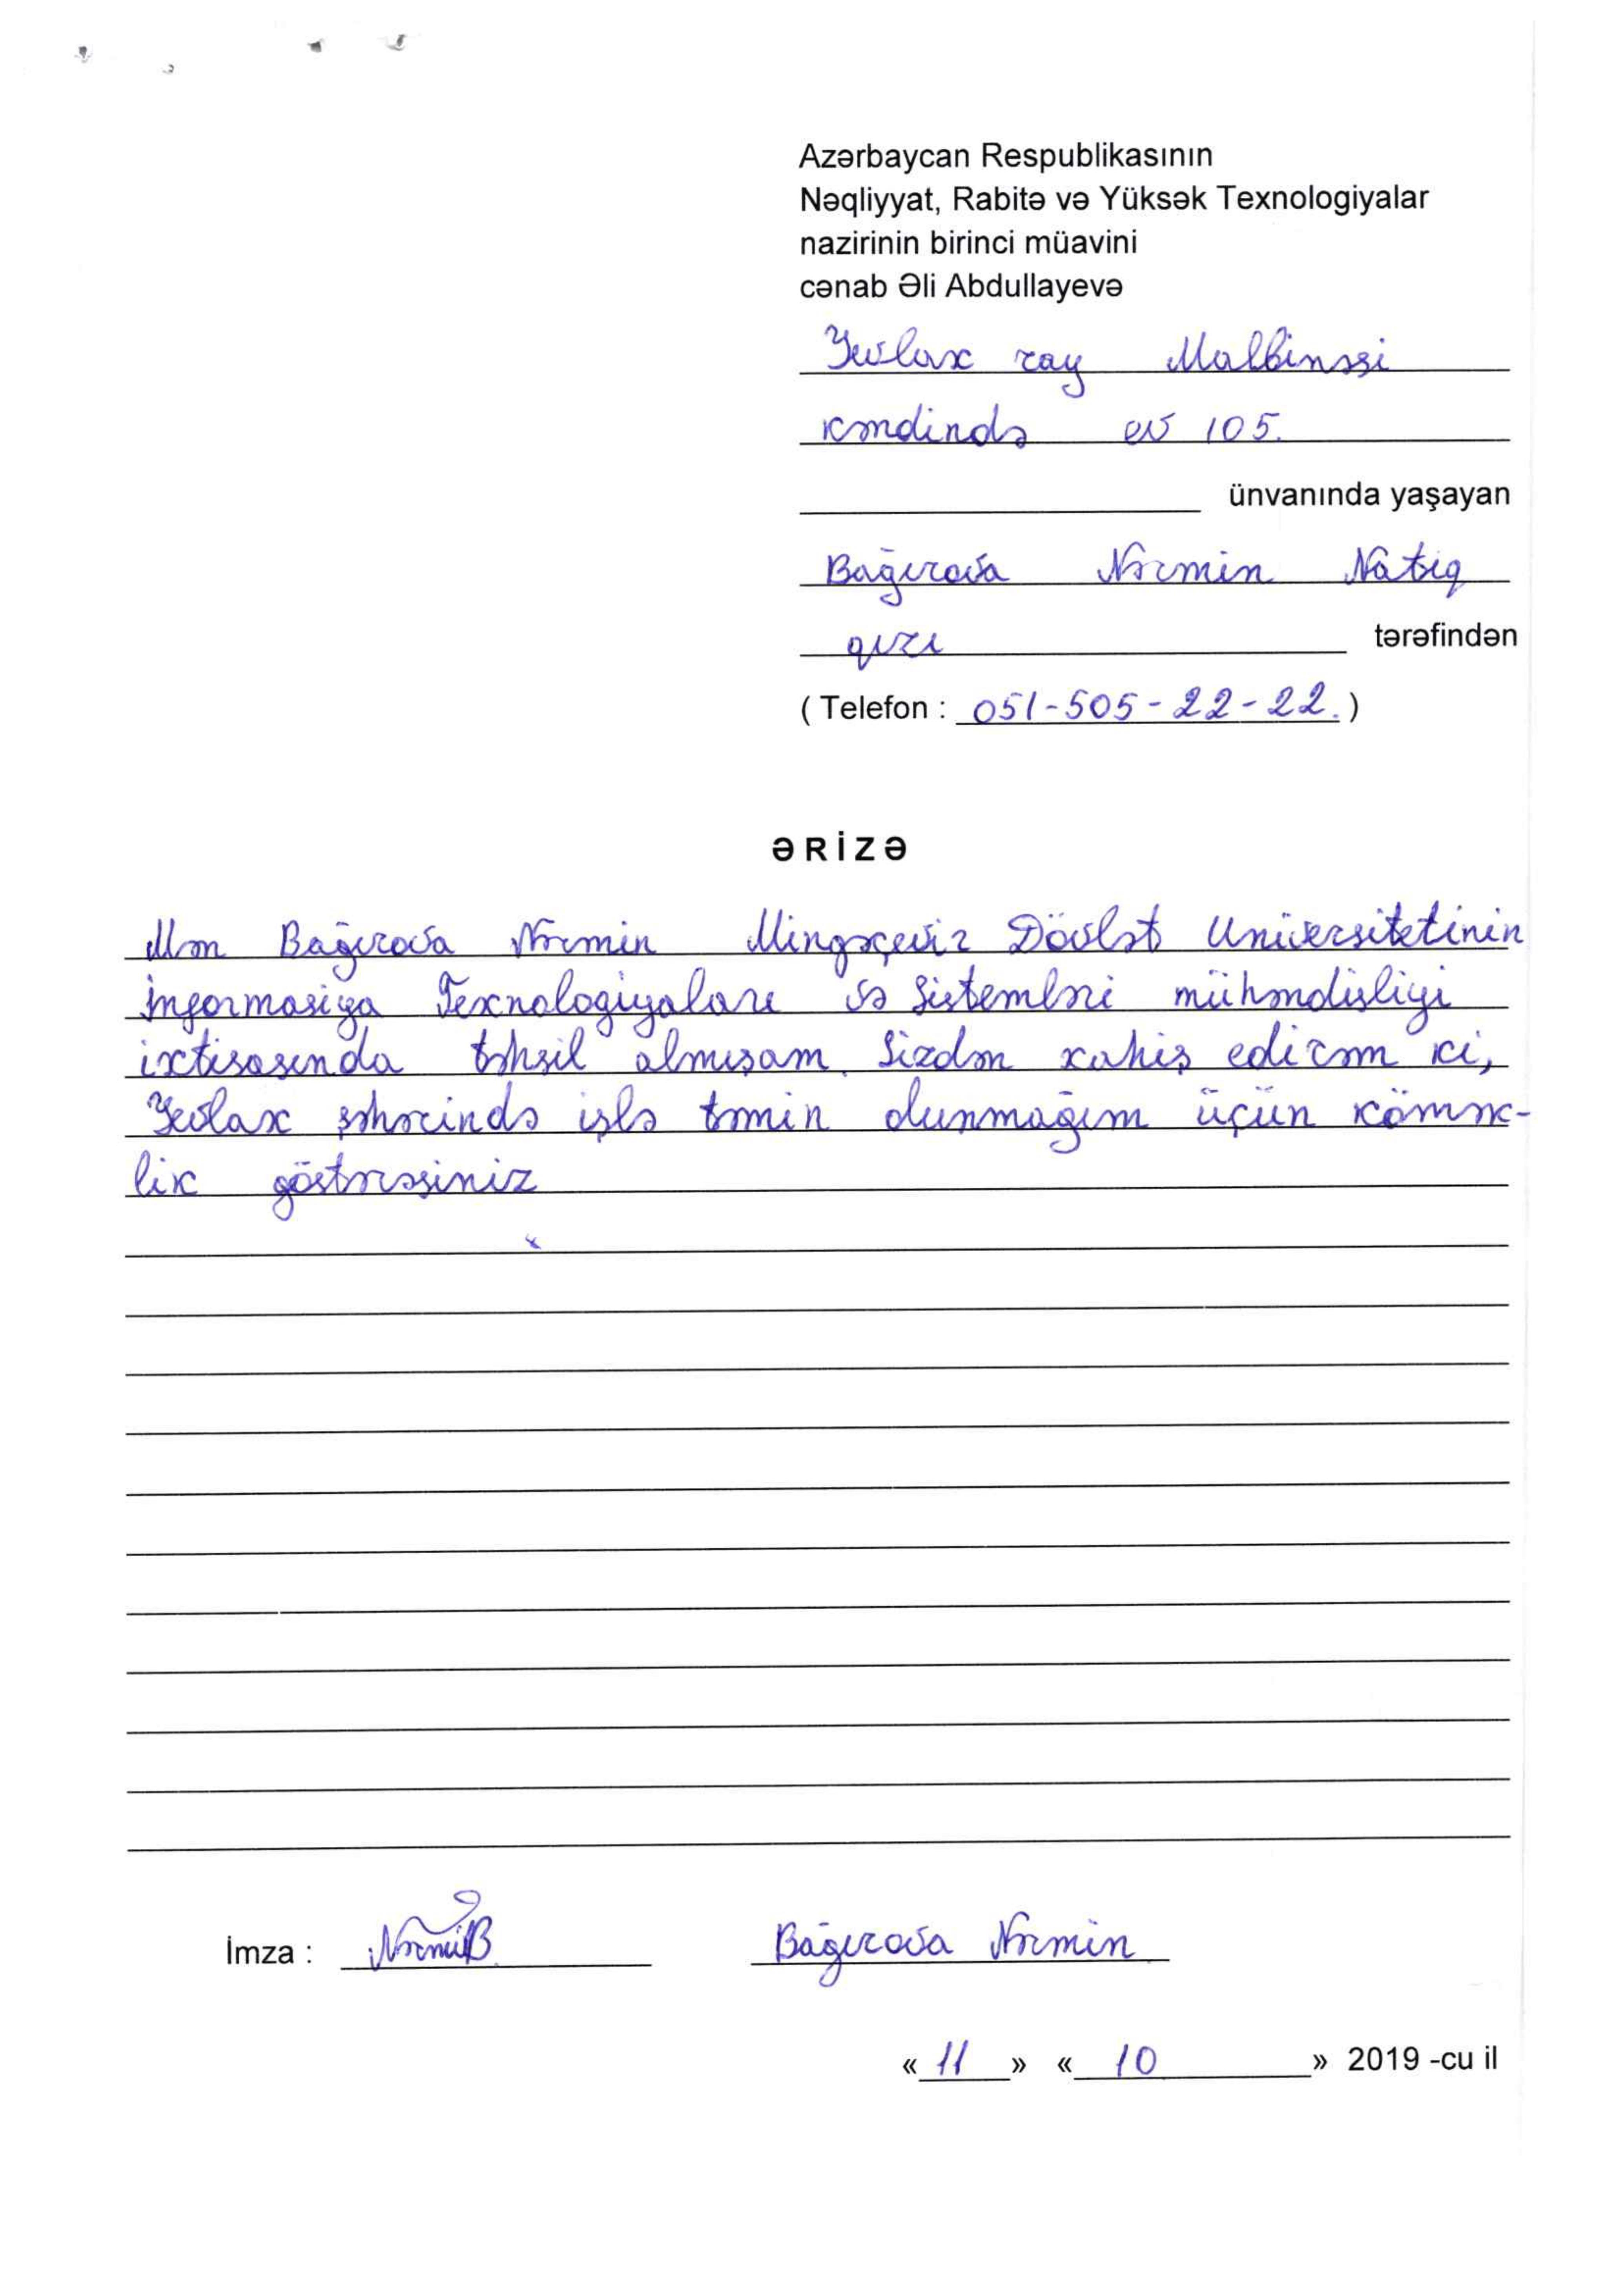 Azərbaycan Respublikasının
Nəqliyyat, Rabitə və Yüksək Texnologiyalar
nazirinin birinci müavini
cənab Əli Abdullayevə
Yevlax ray Malbinəsi
kəndində ev 105.
ünvanında yaşayan
Bağırova Nərmin Natiq
qızı tərəfindən
( Telefon : 051-505-22-22. )
ƏRİZƏ
Mən Bağırova Nərmin Mingəçevir Dövlət Universitetinin
İnformasiya Texnologiyaları və Sistemləri mühəndisliyi
ixtisasında təhsil almışam. Sizdən xahiş edirəm ki,
Yevlax şəhərində işlə təmin olunmağım üçün kömək-
lik göstərəsiniz
İmza : NərminB. Bağırova Nərmin
« 11 » « 10 » 2019 -cu il